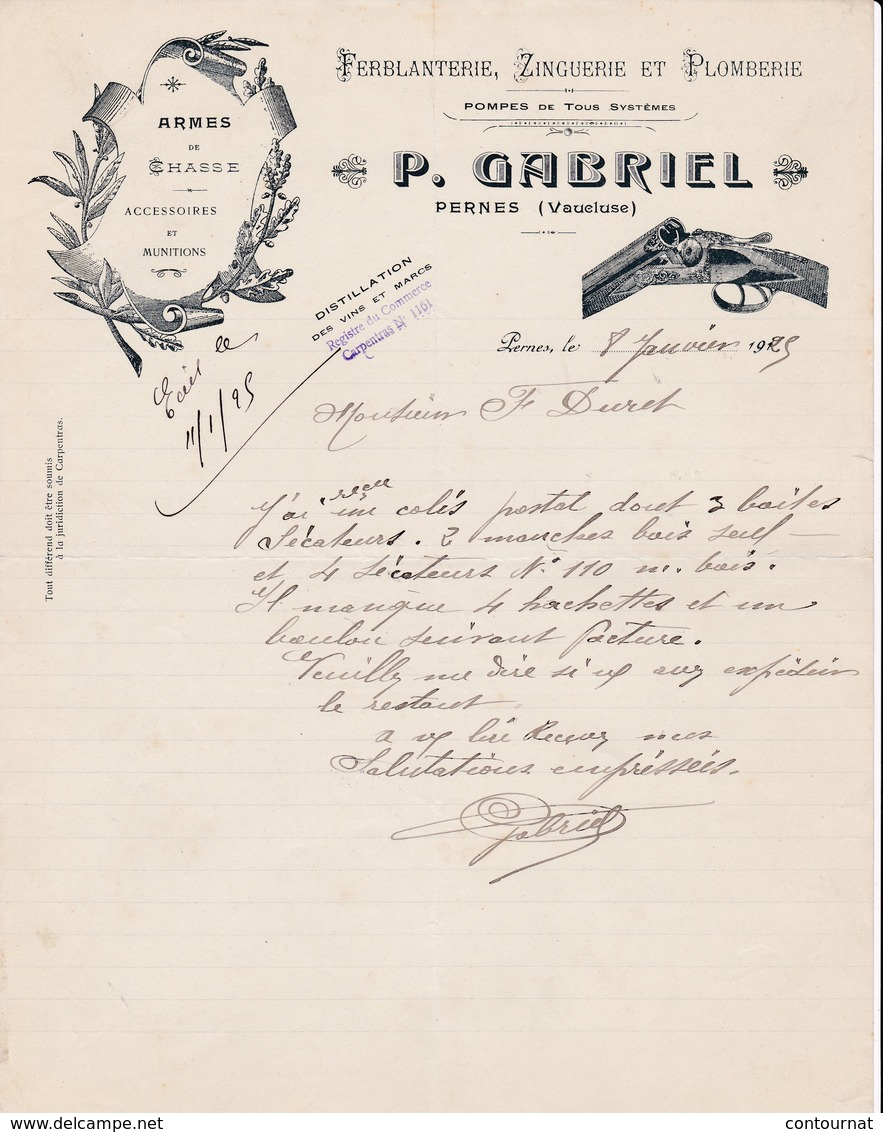 FERBLANTERIE, ZINGUERIE ET PLOMBERIE
POMPES DE TOUS SYSTÈMES
P. GABRIEL
PERNES (Vaucluse)
ARMES
DE
CHASSE
ACCESSOIRES
ET
MUNITIONS
DISTILLATION
DES VINS ET MARCS
Registre du Commerce
Carpentras N° 1161
Pernes, le 8 Janvier 1925
Ecrit le
11/1/25
Monsieur F Duret
Tout différend doit être soumis
à la juridiction de Carpentras.
J'ai reçu un colis postal dont 3 boites
Sécateurs. 2 manches bois seul
et 4 Sécateurs N° 110 m. bois.
Il manque 4 hachettes et un
boulon suivant facture.
Veuilly me dire si vs avez
le restant
a vs lire Recevez mes
Salutations empréssées.
Gabriel
delcampe.net
contournat